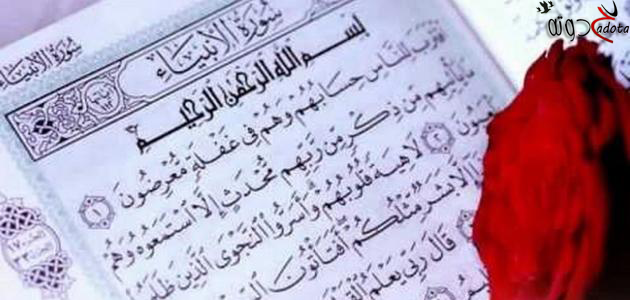 سُورَةُ الأَنبِيَاءِ
سُورَةُ الأَنبِيَاءِ
بِسْمِ اللَّهِ الرَّحْمَٰنِ الرَّحِيمِ
ٱقْتَرَبَ لِلنَّاسِ حِسَابُهُمْ وَهُمْ فِى غَفْلَةٍ مُّعْرِضُونَ ١
يَأْتِيهِم مِّن ذِكْرٍ مِّن رَّبِّهِم مُّحْدَثٍ إِلَّا ٱسْتَمَعُوهُ وَهُمْ
٢ لَاهِيَةً قُلُوبُهُمْ وَأَسَرُّوا۟ ٱلنَّجْوَى ٱلَّذِينَ
إِلَّا بَشَرٌ مِّثْلُكُمْ أَفَتَأْتُونَ
قَالَ رَبِّى يَعْلَمُ